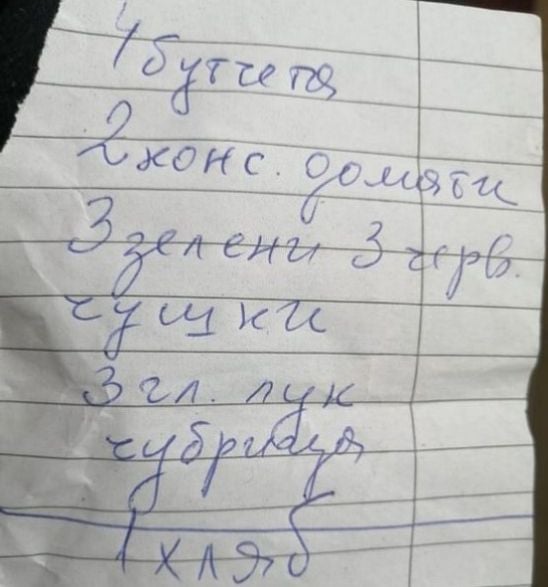 4 бутчета
2 конс. домати
3 зелени 3 черв.
чушки
3 гл. лук
чубрица
1 хляб